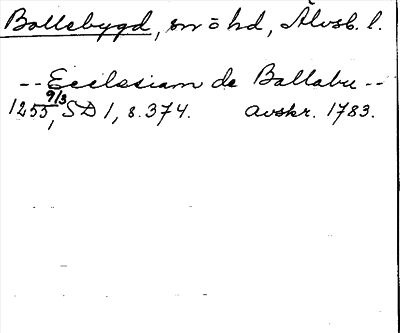 Bollebygd, sn o hd, Älvsb. l.
-- Ecclesiam de Ballabu --
1255 9/3, SD 1, s. 374. Avskr. 1783.